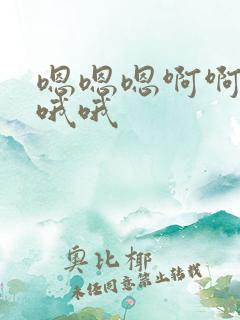 嗯嗯嗯啊啊
哦哦
奥比椰
未经同意禁止转载